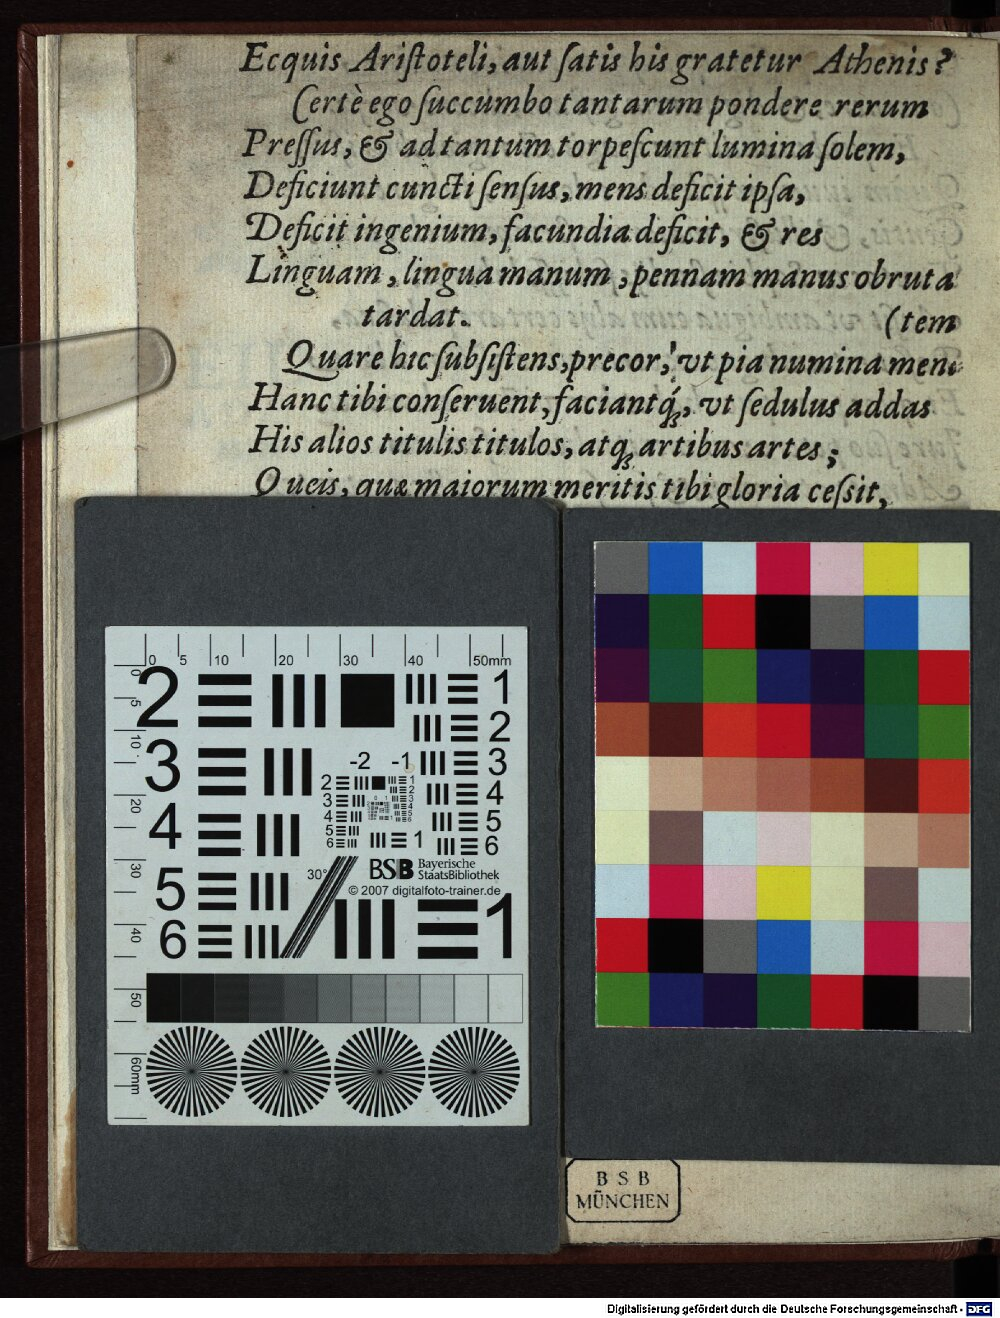 Ecquis Ariſtoteli, aut ſatis his gratetur Athenis?
Certè ego ſuccumbo tantarum pondere rerum
Preſſus, & ad tantum torpeſcunt lumina ſolem,
Deficiunt cuncti ſenſus, mens deficit ipſa,
Deficit ingenium, facundia deficit, & res
Linguam, lingua manum, pennam manus obruta
tardat. (tem
Quare hic ſubſiſtens, precor, vt pia numina men-
Hanc tibi conſeruent, faciantq́;, vt ſedulus addas
His alios titulis titulos, atq; artibus artes;
Queis, quæ maiorum meritis tibi gloria ceſſit,
0 5 10 20 30 40 50mm
0 5 10 20 30 40 50 60mm
2 1
2
3 -2 -1 3
2 1
2
3 3
4 4 4
5 5 5
6 6 1 6
30°
BSB Bayerische
StaatsBibliothek
© 2007 digitalfoto-trainer.de
5
6 1
B S B
MÜNCHEN
Digitalisierung gefördert durch die Deutsche Forschungsgemeinschaft - DFG